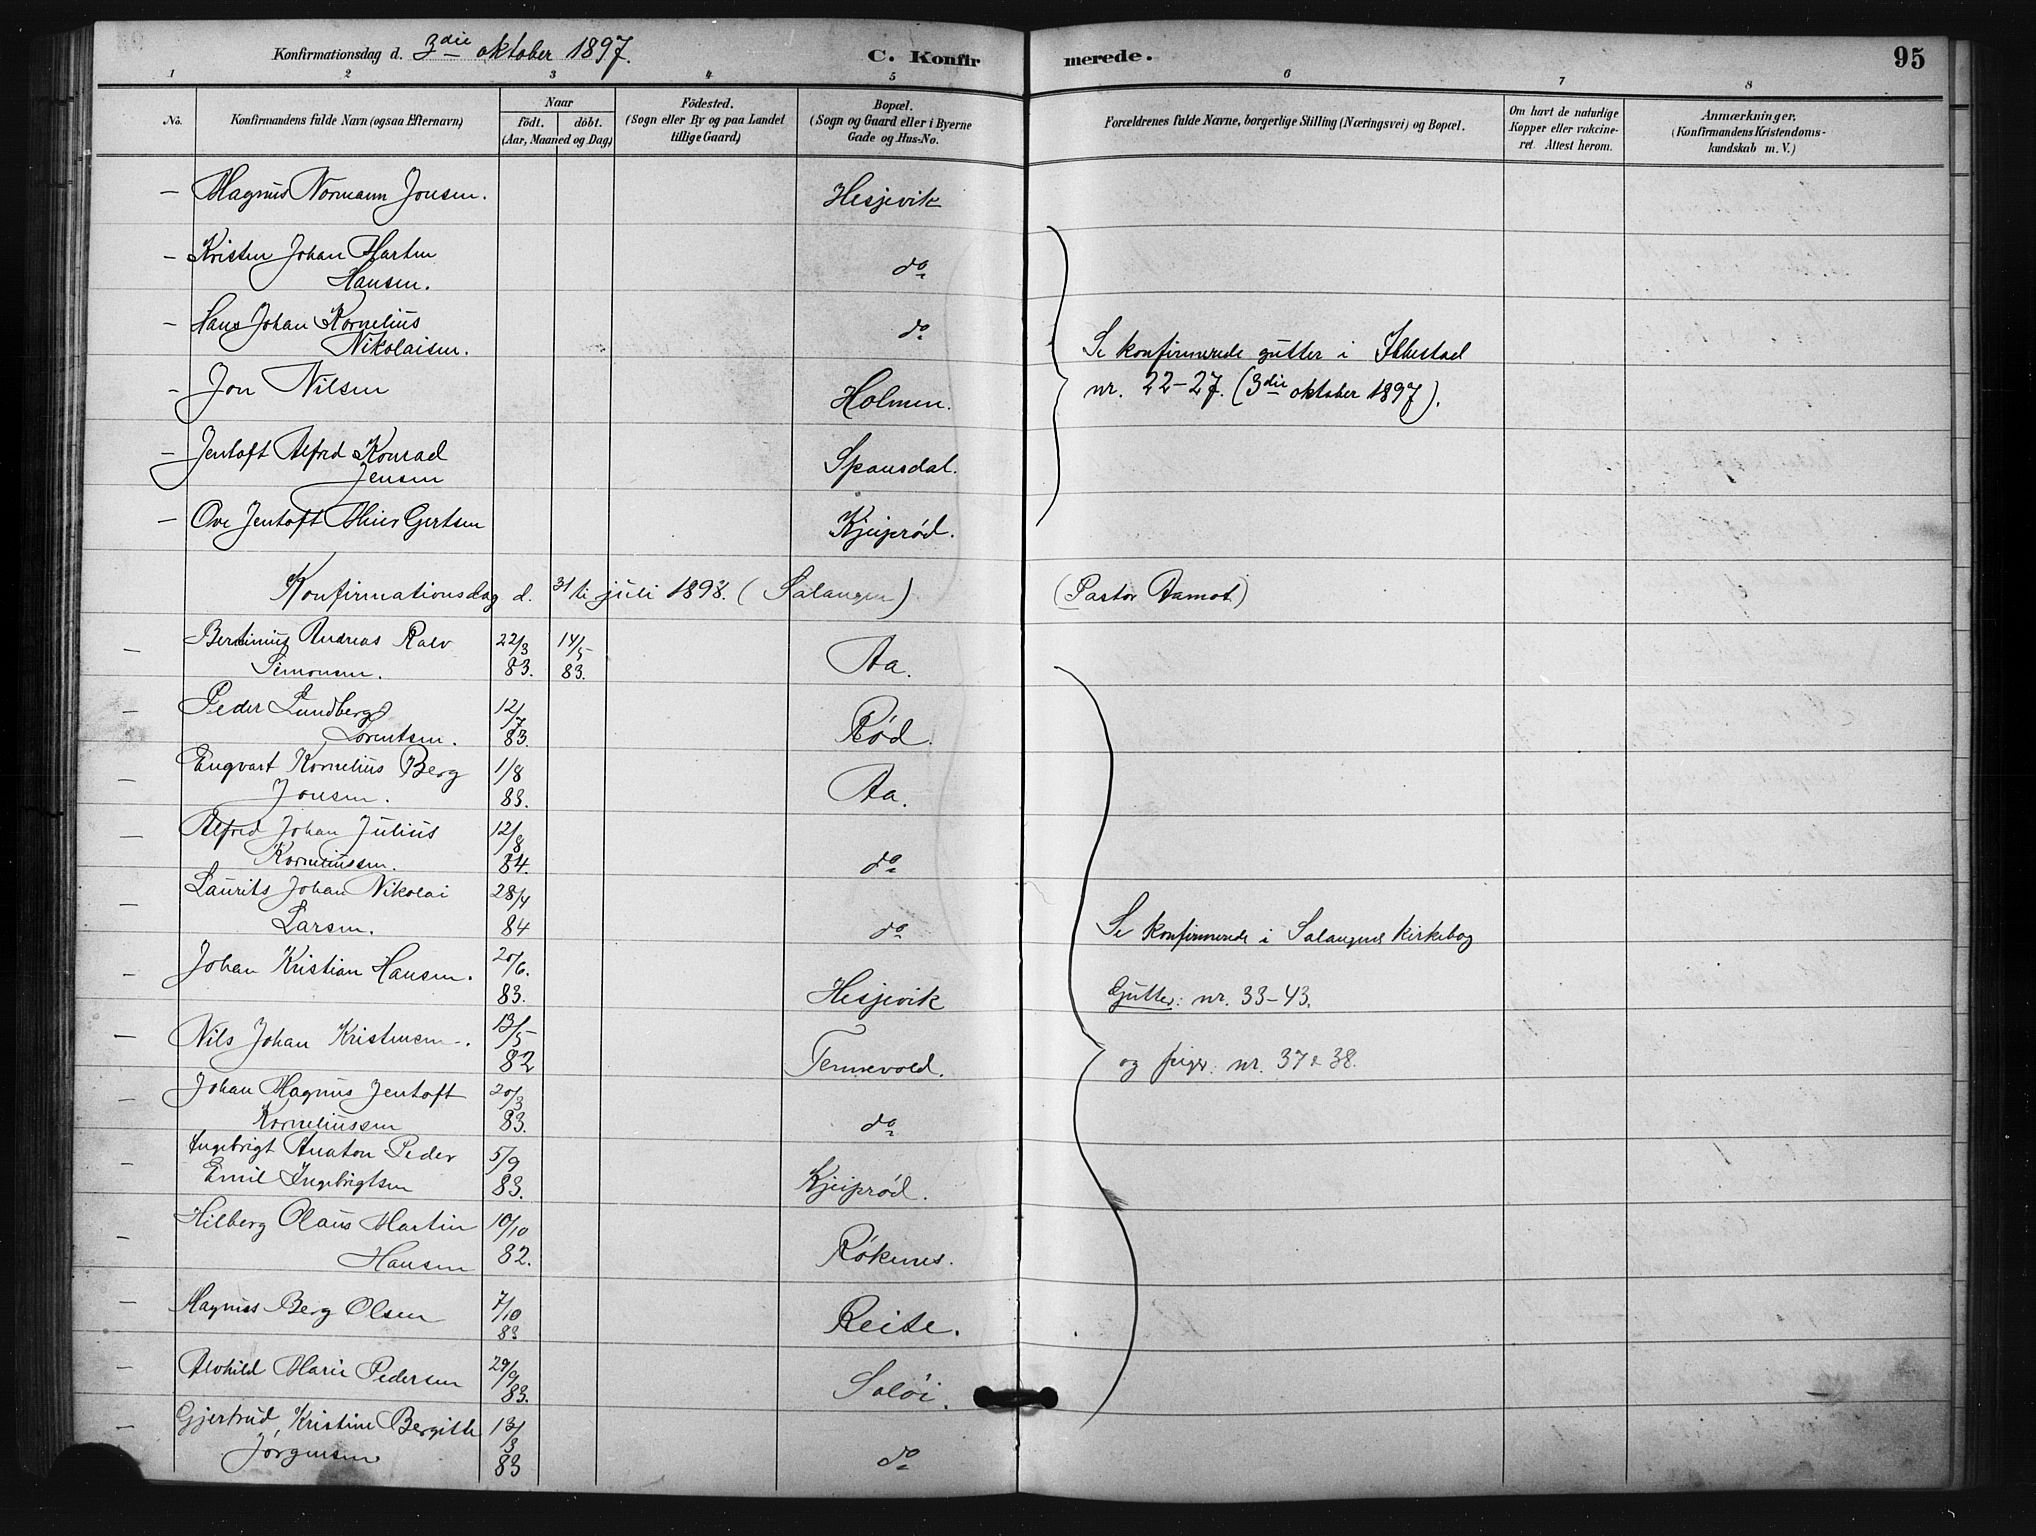 Konfirmationsdag d. 3die oktober 1897.
C. Konfirmerede.
95
1 2 3 4 5 6 7 8
No.
Konfirmandens fulde Navn (ogsaa Efternavn)
Naar
födt. döbt.
(Aar, Maaned og Dag)
Födested.
(Sogn eller By og paa Landet
tillige Gaard)
Bopæl.
(Sogn og Gaard eller i Byerne
Gade og Hus-No.
Forældrenes fulde Navne, borgerlige Stilling (Næringsvei) og Bopæl.
Om havt de naturlige
Kopper eller vakcine-
ret. Attest herom.
Anmærkninger.
(Konfirmandens Kristendoms-
kundskab m. V.)
– Magnus Normann Jonsen. Hesjevik
– Kristen Johan Martin
Hansen. do
– Hans Johan Kornelius
Nikolaisen. do
Se konfirmerede gutter i Ibbestad
– Jon Nilsen Holmen.
nr. 22–27. (3die oktober 1897).
– Jentoft Alfred Konrad
Jensen Spansdal.
– Ove Jentoft Meier Gertsen Kjeiprød.
Konfirmationsdag d. 31te juli 1898. (Salangen) (Pastor Aamot)
– Bertinius Andreas Ralv 22/3 14/5
Simonsen. 83. 83. Aa.
– Peder Lundberg 12/7
Lorentsen. 83. Rød.
– Engvart Kornelius Berg 1/8
Jonsen. 83. Aa.
– Alfred Johan Julius 12/8
Korneliussen. 84. do
– Laurits Johan Nikolai 28/4
Larsen. 84 do
Se konfirmerede i Salangens kirkebog
– Johan Kristian Hansen. 20/6.
83. Hesjevik
Gutter: nr. 33–43.
– Nils Johan Kristensen. 13/5
82 Tennevold.
og piger: nr. 37 & 38.
– Johan Magnus Jentoft 20/3
Korneliussen 83. do
– Ingebrigt Anaton Peder 5/9
Emil Ingebrigtsen 83. Kjeiprød.
– Hilberg Olaus Martin 10/10
Hansen 82. Røkenes.
– Magnus Berg Olsen 7/10
83 Reite.
– Alvhild Marie Pedersen 29/9
83. Saløi.
– Gjertrud, Kristine Bergitte 13/3
Jørgensen 83 do